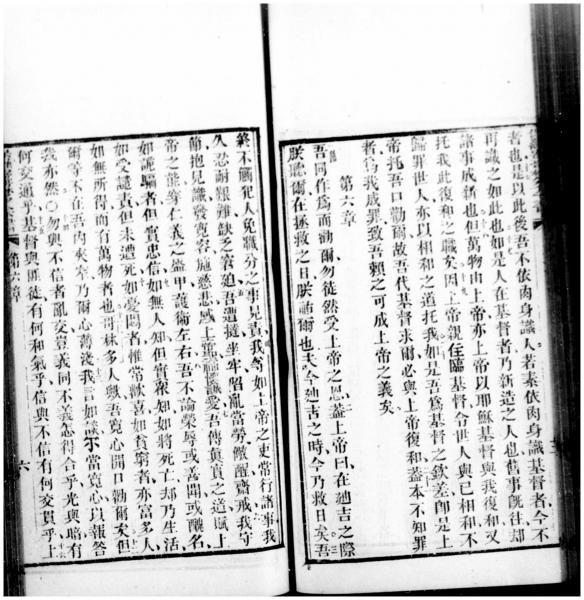 者也是以此後吾不依肉身識人若素依肉身識基督者今不
再識之如此也如是人在基督者乃新造之人也舊事旣往却
諸事成新也但萬物由上帝亦上帝以耶穌基督與我復和又
托我此復和之職矣因上帝親住臨基督令世人與已相和不
歸罪世人亦以相和之道托我如是吾爲基督之欽差卽是上
帝托吾口勸爾故吾代基督求爾必與上帝復和蓋本不知罪
者爲我成罪致吾賴之可成上帝之義矣
第六章
吾同作爲而勸爾勿徒然受上帝之恩蓋上帝曰在廸吉之際
朕聽爾在拯救之日朕祐爾也夫今廸吉之時今乃救日矣吾
終不觸犯人免職分之事見責我等如上帝之吏常行諸事我
久忍耐艱難缺乏窘廹吾遭撻坐牢招亂當勞儆醒齋戒我守
節抱見識發寬容施慈悲感上
愛吾傳真實之道賦上
帝之能穿仁義之盔甲護衛左右吾不論榮辱或善聞或醜名
如誑騙者但實忠信如無人知但實衆知如將死亡却乃生活
如受譴責但未遭死如憂悶者惟常歡喜如貧窮者亦富多人
如無所得而有萬物者也哥林多人歟吾寬心開口勸爾矣但
爾等不在吾內夾窄乃爾心薄淺我言如誨尔當寬心以報答
我亦然〇勿與不信者亂交豈義同不義怎得合乎光與暗有
何交通乎基督與匪徒有何和氣乎信與不信有何交貫乎上
第六章
六